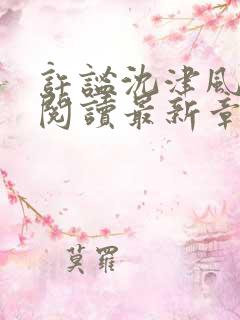 許諡沈津風
閱讀最新章
莫羅